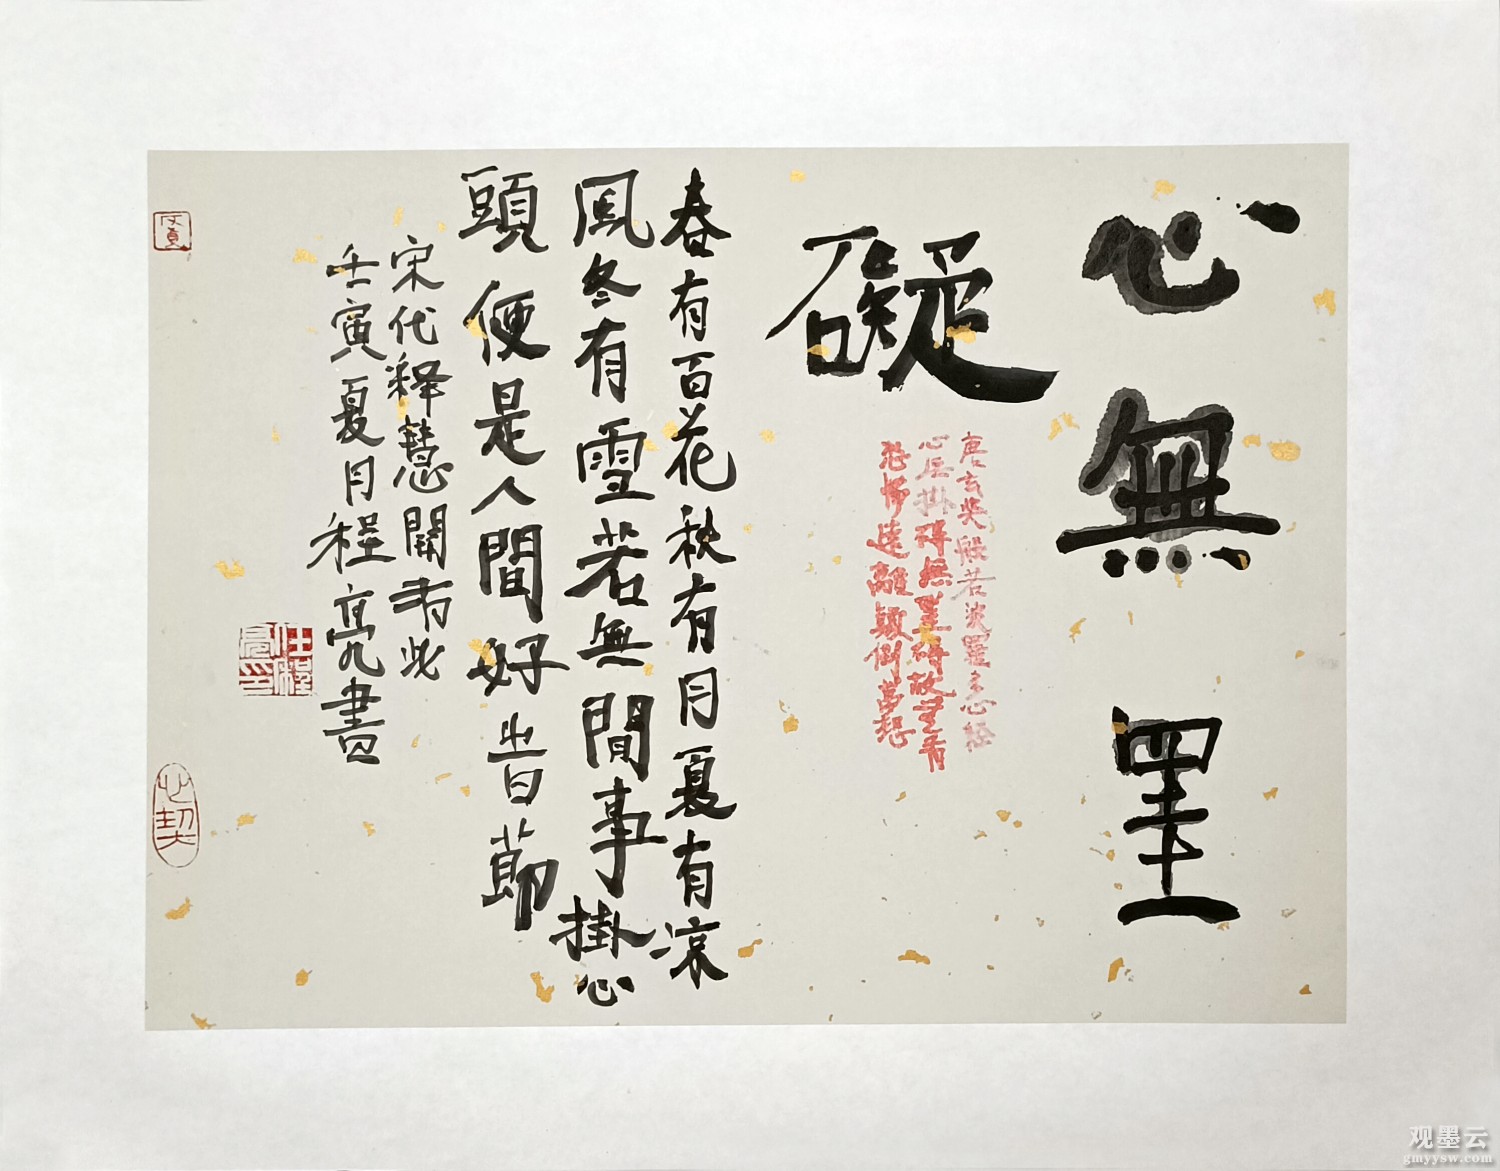 心無罣
礙
唐玄奘般若波羅多心經
心無掛碍無罣碍故無有
恐怖遠離顛倒夢想
春有百花秋有月夏有凉
風冬有雪若無閒事掛心
頭便是人間好旹節
宋代释慧開
壬寅夏月程亮書
任程亮印
心契
观墨云
gmyysw.com